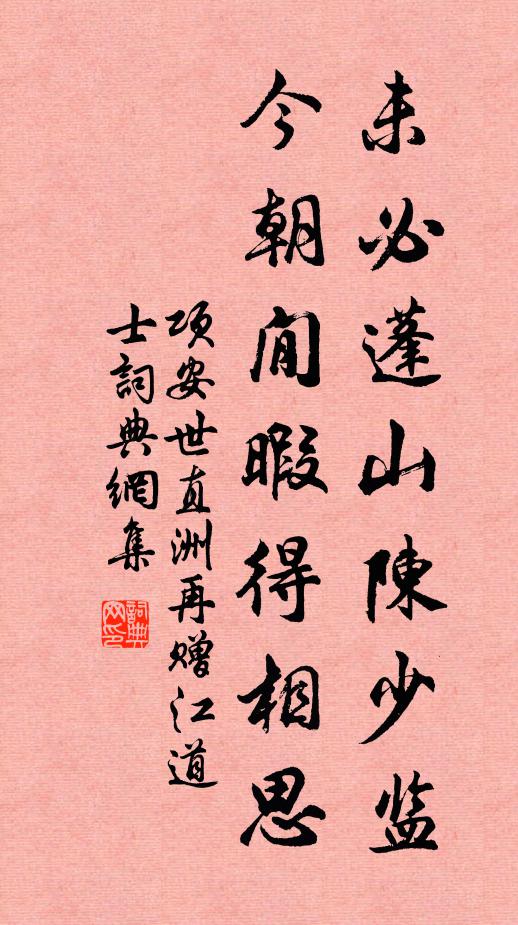 未必蓬山陳少监
今朝閒暇得相思
项安世直洲再赠江道
士詞典網集
詞典網印